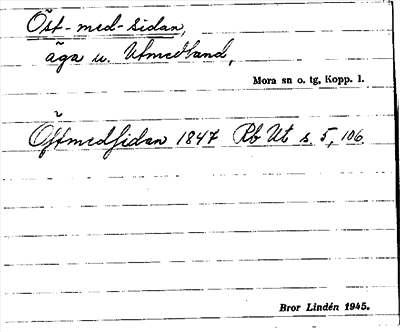 Öst-med-sidan,
äga u. Utmedland,
Mora sn o. tg, Kopp. l.
Öftmedsidan 1847 Rb Ut s. 5, 106.
Bror Lindén 1945.